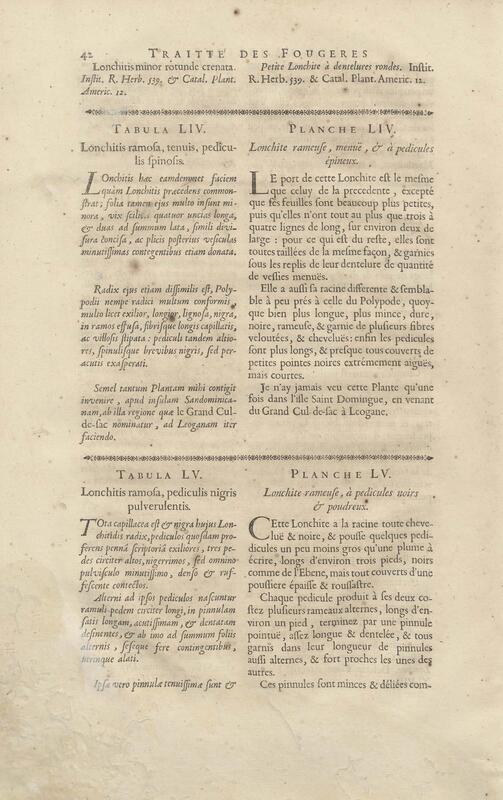 42 TRAITTÉ DES FOUGERES
Lonchitis minor rotunde crenata.
Instit. R. Herb. 539. & Catal. Plant.
Americ. 12.
TABULA LIV.
Lonchitis ramosa, tenuis, pedicu-
lis spinosis.
LOnchitis hæc eamdemnet faciem
quàm Lonchitis præcedens common-
strat; folia tamen ejus multo insunt mi-
nora, vix scilicet quatuor uncias longa,
& duas ad summum lata, simili divi-
sura concisa, ac plicis posterius vesiculas
minutissimas contegentibus etiam donata.
Radix ejus etiam dissimilis est, Poly-
podii nempe radici multum conformis,
multo licet exilior, longior, lignosa, nigra,
in ramos effusa, fibrisque longis capillatis,
ac villosis stipata: pediculi tandem altio-
res, spinulisque brevibus nigris, sed per-
acutis exasperati.
Semel tantum Plantam mihi contigit
invenire, apud insulam Sandominica-
nam, ab illa regione quæ le Grand Cul-
de-sac nominatur, ad Leoganam iter
faciendo.
TABULA LV.
Lonchitis ramosa, pediculis nigris
pulverulentis.
TOta capillacea est & nigra hujus Lon-
chitidis radix, pediculos quosdam pro-
ferens pennâ scriptoriâ exiliores, tres pe-
des circiter altos, nigerrimos, sed omnino
pulvisculo minutissimo, denso & ruf-
fescente contectos.
Alterni ad ipsos pediculos nascuntur
ramuli pedem circiter longi, in pinnulam
satis longam, acutissimam, & dentatam
desinentes, & ab imo ad summum foliis
alternis, seseque fere contingentibus,
utrinque alati.
Ipsæ vero pinnulæ tenuissimæ sunt &
Petite Lonchite à dentelures rondes. Instit.
R. Herb. 539. & Catal. Plant. Americ. 12.
PLANCHE LIV.
Lonchite rameuse, menuë, & à pedicules
épineux.
LE port de cette Lonchite est le mesme
que celuy de la precedente, excepté
que ses feuilles sont beaucoup plus petites,
puis qu'elles n'ont tout au plus que trois à
quatre lignes de long, sur environ deux de
large: pour ce qui est du reste, elles sont
toutes taillées de la mesme façon, & garnies
sous les replis de leur dentelure de quantité
de vessies menuës.
Elle a aussi sa racine differente & sembla-
ble à peu prés à celle du Polypode, quoy-
que bien plus longue, plus mince, dure,
noire, rameuse, & garnie de plusieurs fibres
veloutées, & cheveluës: enfin les pedicules
sont plus longs, & presque tous couverts de
petites pointes noires extrémement aiguës,
mais courtes.
Je n'ay jamais veu cette Plante qu'une
fois dans l'isle Saint Domingue, en venant
du Grand Cul-de-sac à Leogane.
PLANCHE LV.
Lonchite rameuse, à pedicules noirs
& poudreux.
CEtte Lonchite a la racine toute cheve-
luë & noire, & pousse quelques pedi-
dicules un peu moins gros qu'une plume à
écrire, longs d'environ trois pieds, noirs
comme de l'Ebene, mais tout couverts d'une
poussiere épaisse & roussastre.
Chaque pedicule produit à ses deux co-
stez plusieurs rameaux alternes, longs d'en-
viron un pied, terminez par une pinnule
pointuë, assez longue & dentelée, & tous
garnis dans leur longueur de pinnules
aussi alternes, & fort proches les unes des
autres.
Ces pinnules sont minces & déliées com-